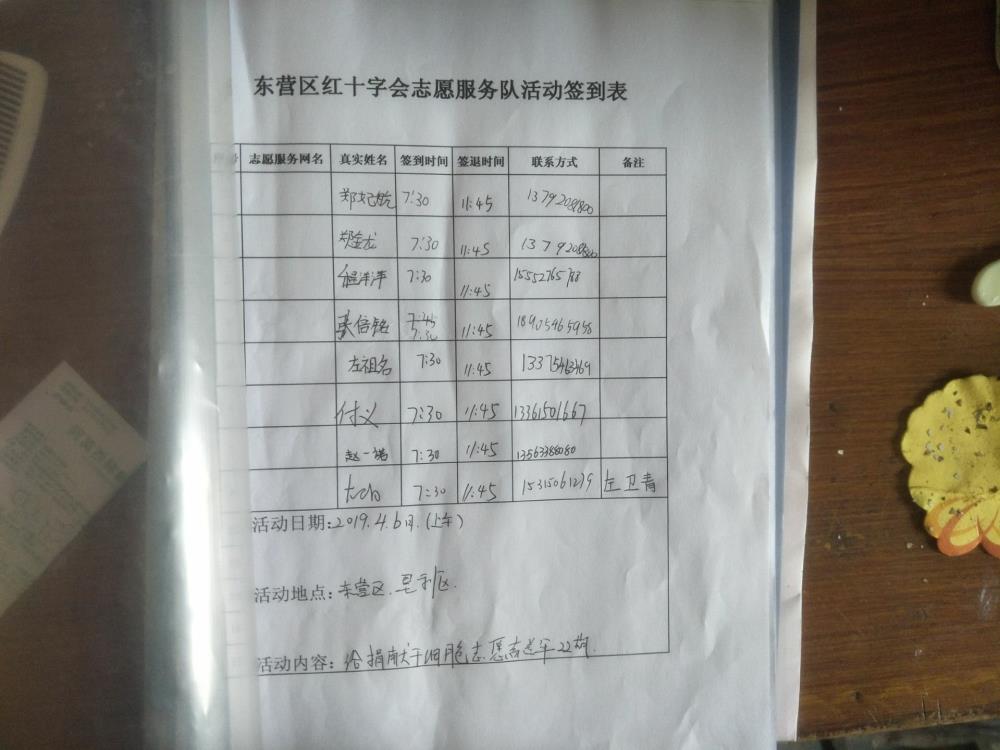 东营区红十字会志愿服务队活动签到表
志愿服务网名 真实姓名 签到时间 签退时间 联系方式 备注
7:30 11:45
郑金龙 7:30 11:45
程洋洋 7:30 11:45
张信铭 7:30 11:45 18905465958
左祖名 7:30 11:45
付义 7:30 11:45 13361501667
赵一诺 7:30 11:45 13563388080
7:30 11:45 15315061239 左卫青
活动日期:2019.4.6日.(上午)
活动地点:东营区.
活动内容:给捐献干细胞志愿者 22期.